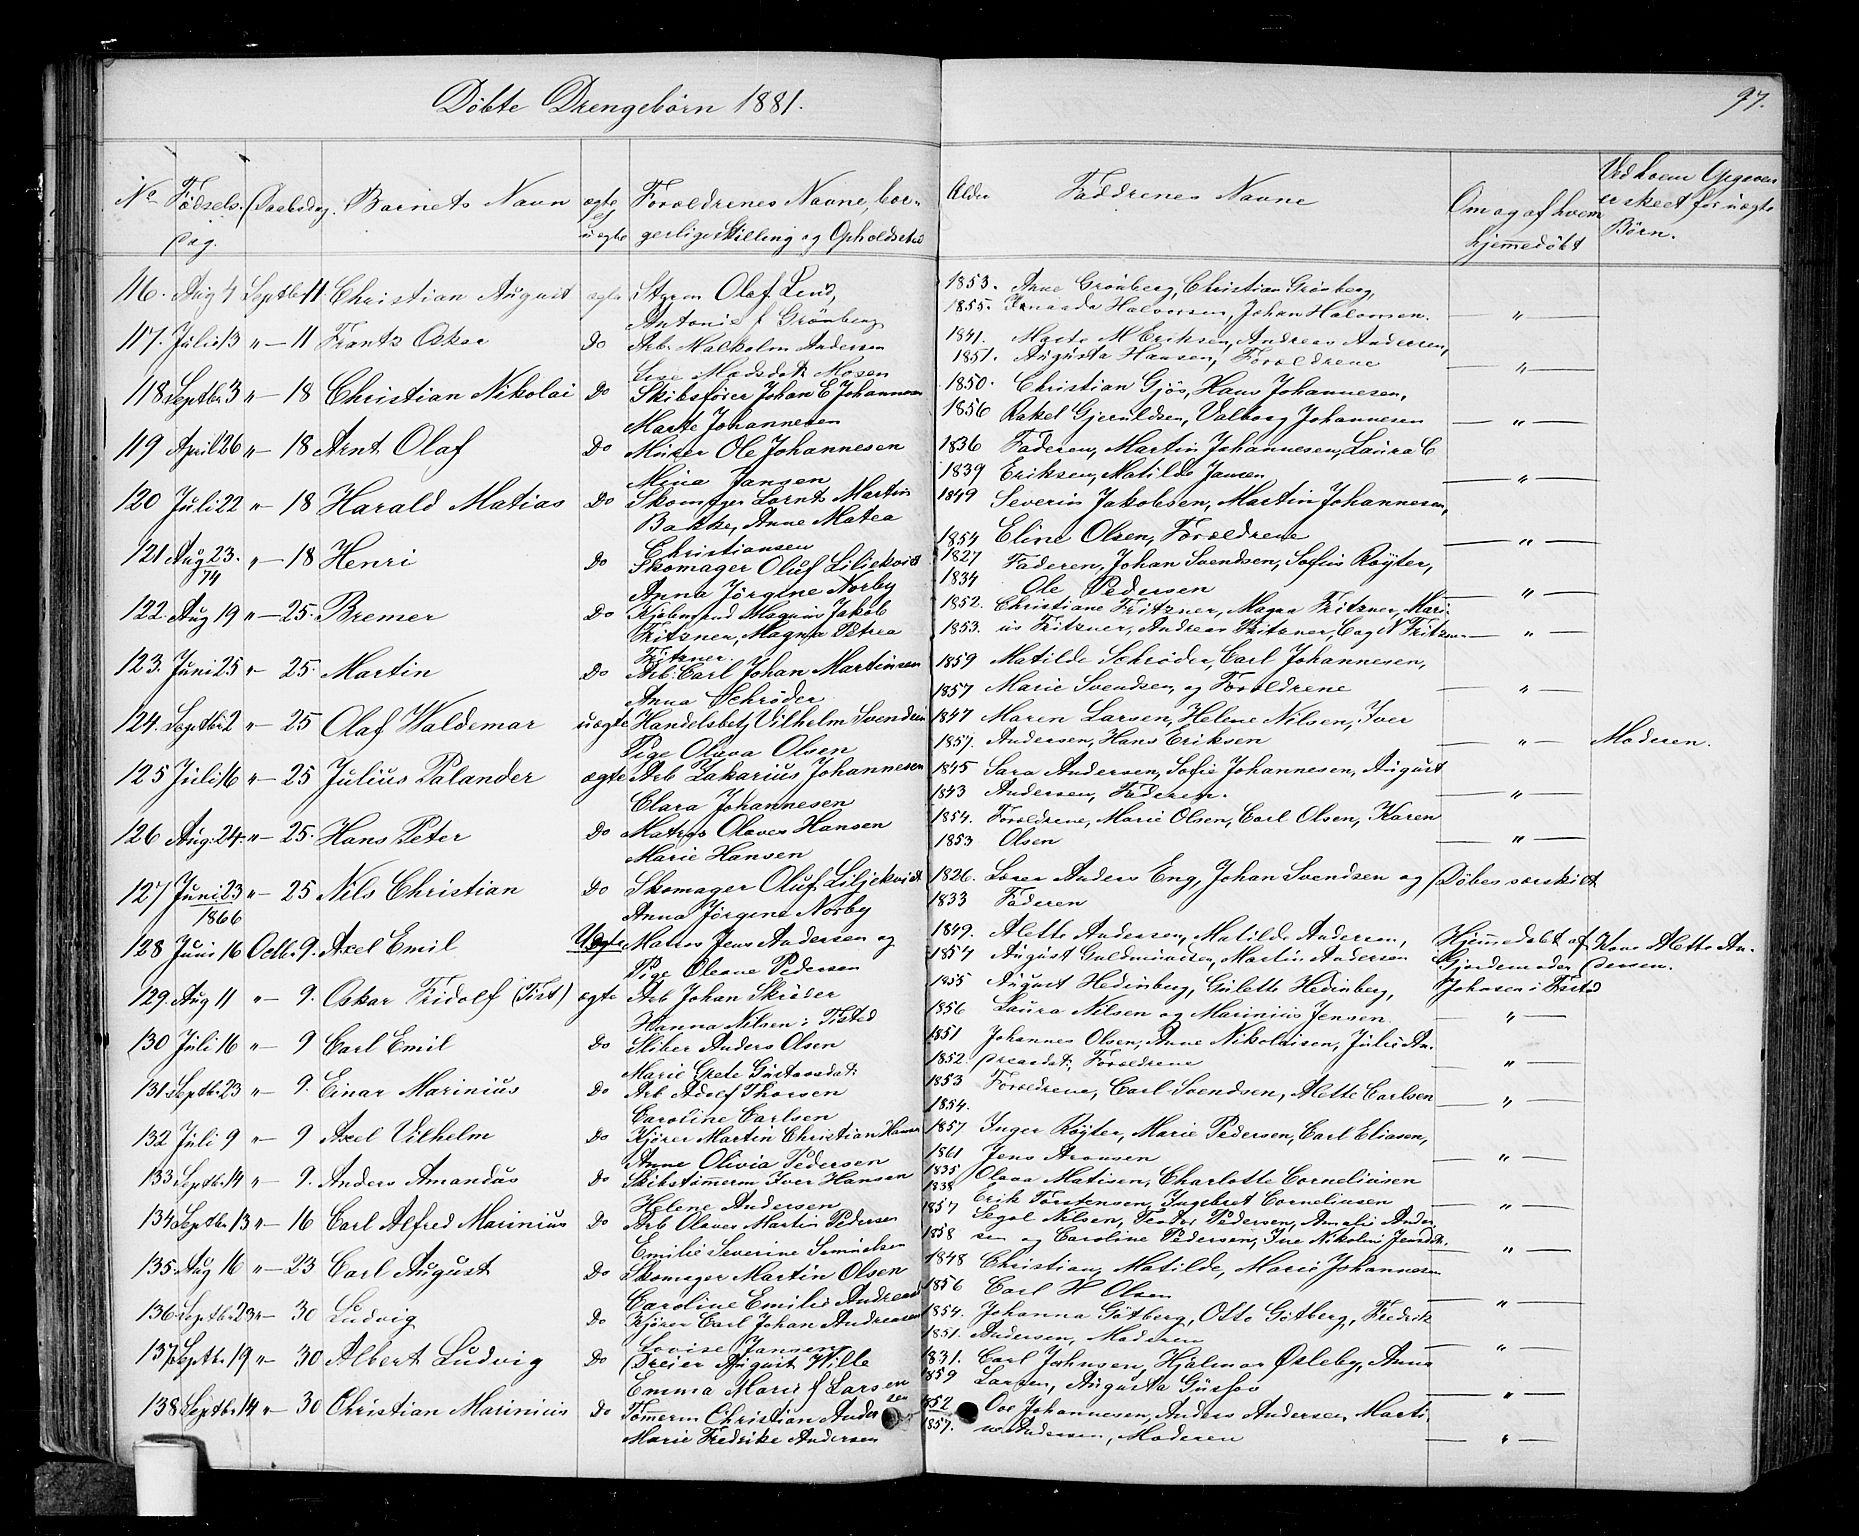 Döbte Drengebörn 1881.
97.
No Födsels- Daabsdag. Barnets Navn ægte Forældrenes Navne, bor- Alder Faddrenes Navne Om og af hvem Ved hvem Opgaven
Dag. el uægte gerlige Stilling og Opholdssted hjemmedöbt er skeet for uægte
Börn.
116. Aug 4 Septbr 11 Christian August ægte Styrm Olaf Lind, 1853. Anne Grönberg, Christian Grönberg,
Antonie f Grönberg 1855. Halvorsen, Johan Halvorsen. — " —
117. Juli 13 " — 11 Frantz Oskar Do Arb. Malkolm Andersen 1841. Marte M Eriksen, Andreas Andersen,
Lise Madsdatr Mosen 1851. Augusta Hansen, Forældrene — " —
118 Septbr 3 " — 18 Christian Nikolai Do Skibsförer Johan E Johannesen 1850. Christian Gjös, Hans Johannesen,
Marte Johannesen 1856 Rakel Gjeruldsen, Valborg Johannesen — " —
119 April 26 " — 18 Arnt Olaf Do Murer Ole Johannesen 1836 Faderen, Martin Johannesen, Laura C
Mina Jansen 1839 Eriksen, Matilde Jansen — " —
120 Juli 22 " — 18 Harald Matias Do Skomager Lornts Martin 1849 Severin Jakobsen, Martin Johannesen,
Bakke, Anne Matea
Christiansen 1854 Eline Olsen, Forældrene — " —
121 Aug 23. " — 18 Henri Do Skomager Oluf Liliekvist 1827 Faderen, Johan Svendsen, Sofus Röyter,
74 Anna Jörgine Norby 1834 Ole Pedersen — " —
122. Aug 19 " — 25. Bremer Do Kjöbmand Magnus Jakob 1852. Christiane Fritzner, Magna Fritzner, Mari-
Fritzner, Magna Petrea 1853. us Fritzner, Andreas Fritzner, Cag N Fritzn — " —
Fritzner.
123. Juni 25 " — 25. Martin Do Arb. Carl Johan Martinsen 1859 Matilde Schröder, Carl Johannesen,
Anna Schröder. 1857 Marie Svendsen, og Forældrene — " —
124. Septbr 2 " — 25 Olaf Waldemar uægte Handelsbetj Vilhelm Svendsen 1847 Maren Larsen, Helene Nilsen, Iver
Pige Olava Olsen 1857. Andersen, Hans Eriksen — " — Moderen.
125 Juli 16 " — 25 Julius Palander ægte Arb Zakarius Johannesen 1845 Sara Andersen, Sofie Johannesen, August
Clara Johannesen 1843 Andersen, Faderen. — " —
126 Aug. 24. " — 25. Hans Peter Do Matros Olaves Hansen 1854. Forældrene, Marie Olsen, Carl Olsen, Karen
Marie Hansen 1853 Olsen — " —
127 Juni 23 " — 25 Nils Christian Do Skomager Oluf Liljekvist 1826. Lorer Anders Eng, Johan Svendsen og Döbes særskilt
1866 Anna Jörgine Norby 1833 Faderen
128 Juni 16 Octb. 9. Axel Emil Uægte Matros Jens Andersen og 1849. Alette Andersen, Matilde Andersen, Hjemmedöbt af Kone Alette An-
Pige Oleane Pedersen 1854 August Guldmunsen, Martin Andersen Gjordemoder dersen.
129. Aug 11 " — 9. Oskar Fridolf (Tist) ægte Arb Johan Skröder 1855 August Hedinberg, Gulette Hedinberg, Johnsen i Tisted
Hanna Nilsen i Tisted 1856 Laura Nilsen og Marinius Jensen. — " —
130 Juli 16 " — 9 Carl Emil Do Skiber Anders Olsen 1851 Johannes Olsen, Anne Nikolaisen, Julie An-
Marie Grete Gustavsdatr 1852. dreasdatr, Forældrene — " —
131. Septbr 23 " — 9. Einar Marinius Do Arb Adolf Thorsen 1853 Forældrene, Carl Svendsen, Alette Carlsen
Caroline Carlsen 1854. — " —
132 Juli 9 " — 9 Axel Vilhelm Do Kjörer Martin Christian Hansen 1857 Inger Röyter, Marie Pedersen, Carl Eliasen,
Anne Olivia Pedersen 1861 Jens Aronsen — " —
133 Septbr. 14 " — 9. Anders Amandus Do Skibstömmerm Iver Hansen 1835 Olava Matisen, Charlotte Corneliusen
Helene Andersen 1838 Erik Torstensen, Ingebret Corneliusen — " —
134 Septbr 13 " — 16 Carl Alfred Marinius Do Arb Olaves Martin Pedersen 1857 Segol Nilsen, Teodor Pedersen, Amalie Ander
Emilie Severine Samuelsen 1858 sen og Caroline Pedersen, Ine Nikolini Jensdtr. — " —
135. Aug 16 " — 23 Carl August Do Skomager Martin Olsen 1848 Christian, Matilde, Marie Johannesen
Caroline Emilie Andreasd 1856 Carl H Olsen — " —
136 Septbr. 23 " — 30 Ludvig Do Kjörer Carl Johan Andreasen 1854. Johanna Götberg, Otto Götberg, Fredrik
Lovise Jansen 1851. Andersen, Moderen — " —
137 Septbr. 19 " — 30 Albert Ludvig Do Dreier August Wille 1831. Carl Johnsen, Hjalmar Osleby, Anna
Emma Marie f Larsen 1859 Larsen, Augusta Gusfov — " —
138 Septbr. 14 " — 30 Christian Marinius Do Tömmerm Christian Andersen 1852 Ove Johannesen, Anders Andersen, Marti
Marie Fredrike Andersen 1857. ne Andersen, Moderen — " —